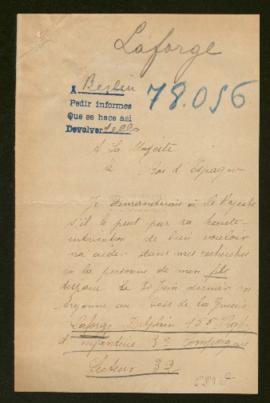 Laforge
A Berlin
78.056
Pedir informes
Que se hace asi
Devolver sello
A Sa Majesté
le Roi d'Espagne
Je demanderais à Sa Majesté
s'il le peut par sa haute
intervention de bien vouloir
m'aider dans mes recherches
de la personne de mon fils
disparu le 30 Juin dernier en
Argonne au Bois de la Gruerie
Laforge 155 Regt
d'infanterie 3e Compagnie
Secteur